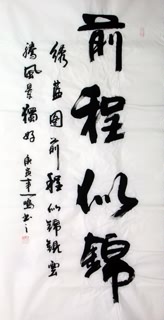 前程似锦
绣蓝图前程似锦观云
腾风景独好